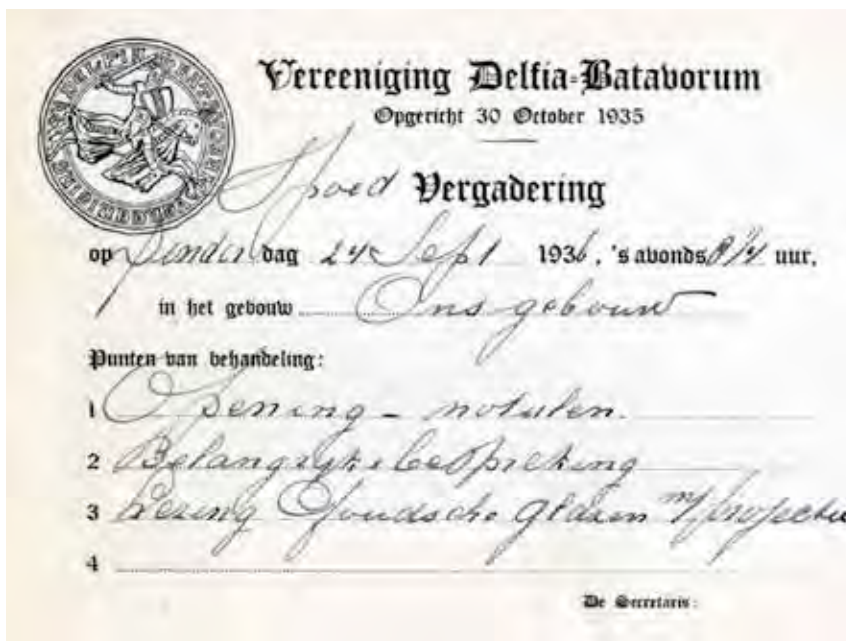 Vereeniging Delfia-Batavorum
Opgericht 30 October 1935
Spoed Vergadering
op Donderdag 24 Sept 1936, 's avonds 8 1/4 uur,
in het gebouw Ons gebouw
Punten van behandeling:
1 Opening - notulen.
2 Belangrijke bespreking
3 Lezing Goudsche glazen m/projectie
4
De Secretaris: